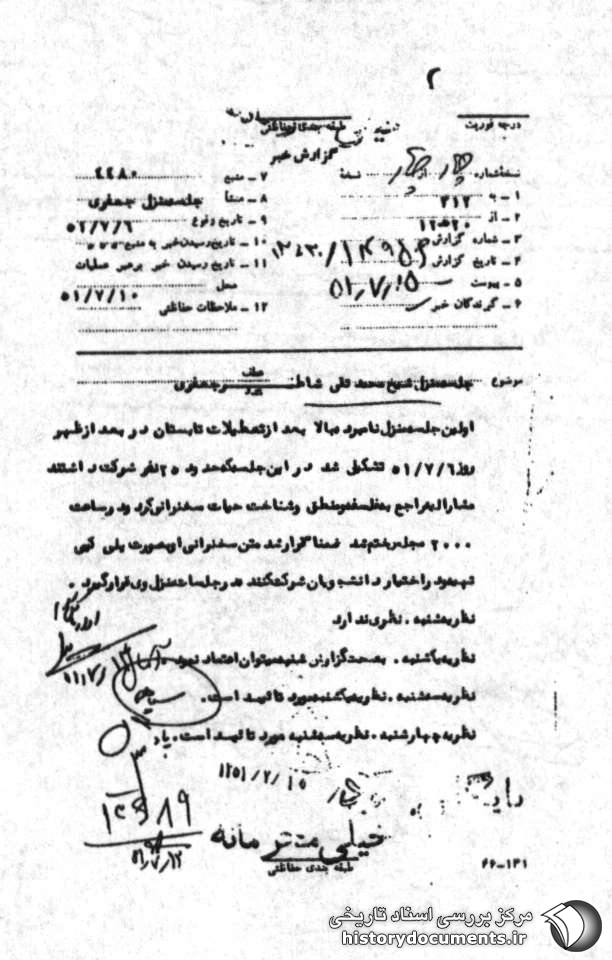 ۲
درجه فوریت
طبقه بندی حفاظتی
گزارش خبر
نسخه شماره چهار از چهار نسخه
۱ - به ۳۱۲
۲ - از ۲۰ه۱۲
۳ - شماره گزارش
۴ - تاریخ گزارش ۵۱/۷/۱۵
۵ - پیوست
۶ - گیرندگان خبر
۷ - منبع ۴۴۸۰
۸ - منشأ جلسه منزل جعفری
۹ - تاریخ وقوع ۵۱/۷/۶
۱۰ - تاریخ رسیدن خبر به منبع
۱۱ - تاریخ رسیدن خبر برهبر عملیات
محل ۵۱/۷/۱۰
۱۲ - ملاحظات حفاظتی
موضوع جلسه منزل شیخ محمد تقی جعفری
اولین جلسه منزل نامبرده بالا بعد از تعطیلات تابستان در بعد از ظهر
روز ۵۱/۷/۶ تشکیل شد در این جلسه که حدود ۲۵ نفر شرکت داشتند
مشارالیه راجع به فلسفه و منطق و شناخت حیات سخنرانی کرد و در ساعت
۲۰۰۰ مجلس ختم شد ضمنا گوارشد متن سخنرانی او بصورت پلی کپی
تهیه و در اختیار دانشجویان شرکت کننده در جلسات منزل وی قرار گیرد .
نظریه شنبه . نظری ندارد
نظریه یکشنبه . بصحت گزارش شنبه میتوان اعتماد نمود .
نظریه سه شنبه . نظریه یکشنبه مورد تائید است .
نظریه چهارشنبه . نظریه سه شنبه مورد تائید است .
۱۳۵۱/۷/۱۵
۵۱/۷/۱۲
خیلی محرمانه
طبقه بندی حفاظتی
۶۶-۱۳۱
مرکز بررسی اسناد تاریخی
historydocuments.ir